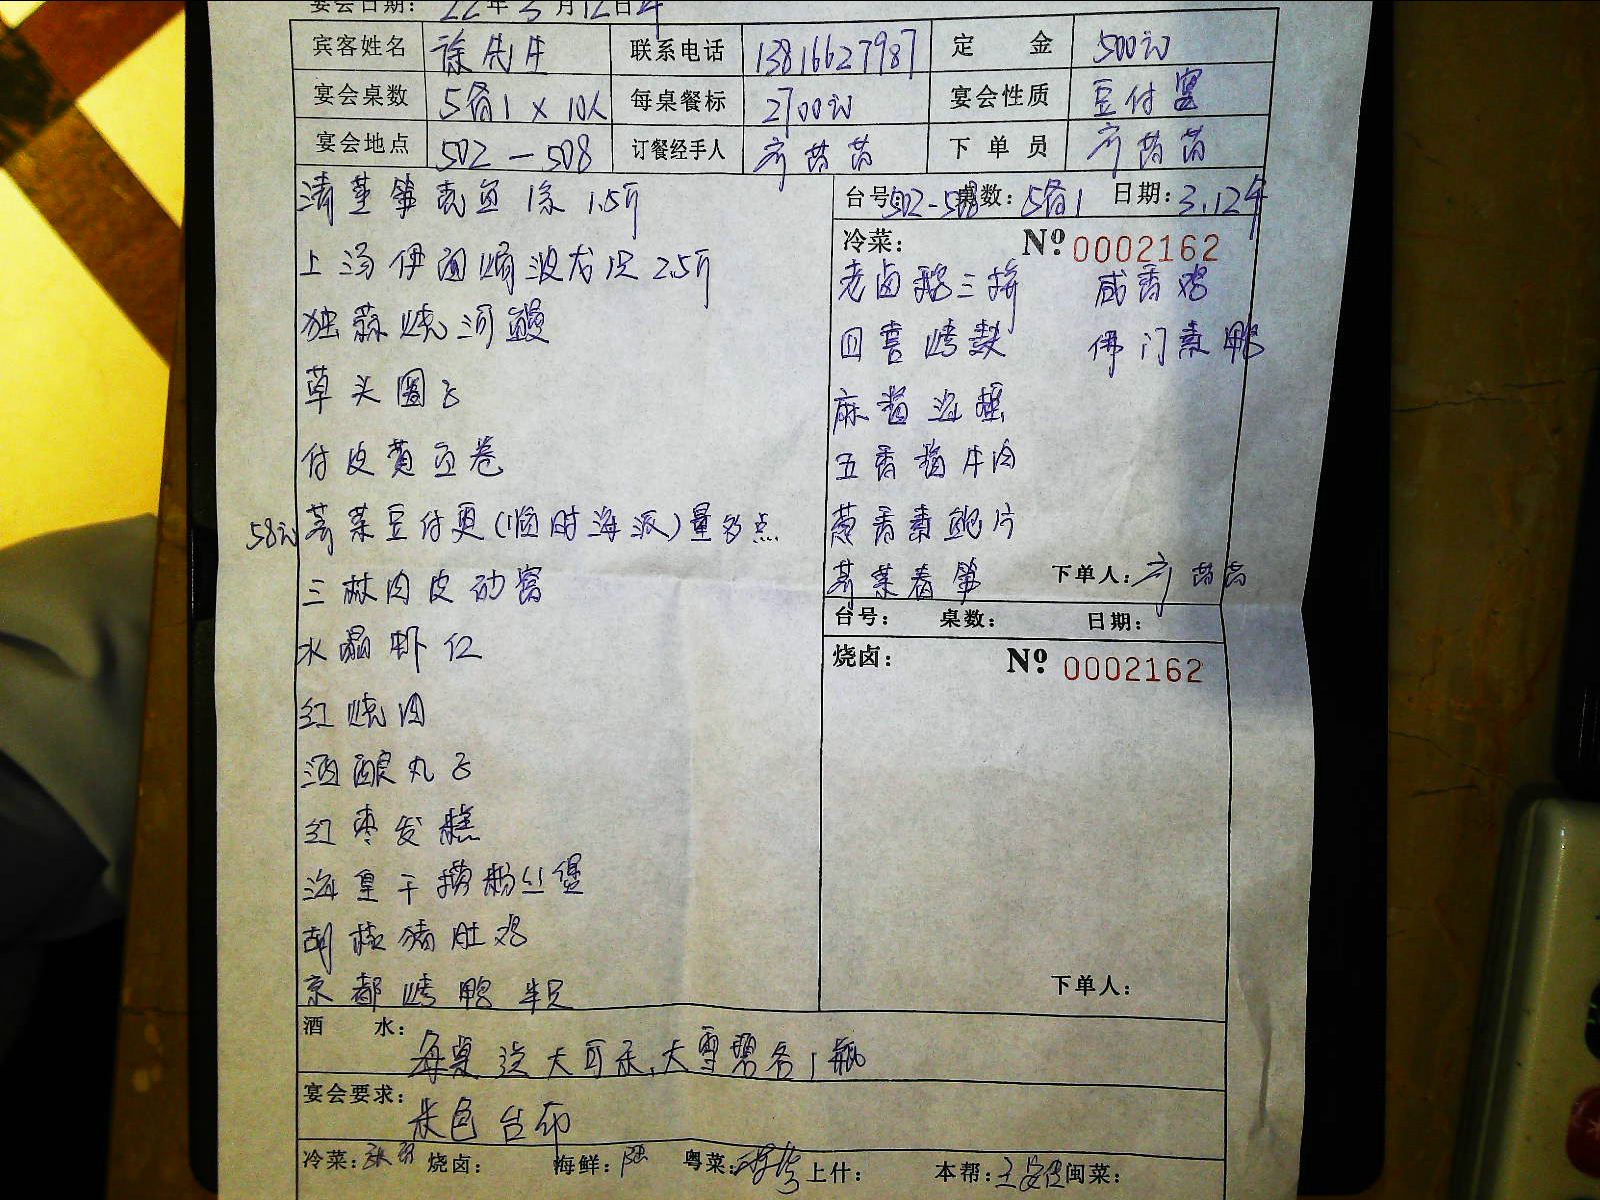 宴会日期： 22年3月12日午
宾客姓名 徐先生 联系电话 13816627987 定 金 500元
宴会桌数 5备1×10人 每桌餐标 2700元 宴会性质 豆付宴
宴会地点 502-508 订餐经手人 齐茜茜 下单员 齐茜茜
清蒸笋壳鱼1条1.5斤
上汤伊面焗波龙1只2.5斤
独蒜烧河鳗
草头圈子
付皮黄豆卷
58元 荠菜豆付更(临时海派)量多点
三林肉皮砂窝
水晶虾仁
红烧肉
酒酿丸子
红枣发糕
海皇干捞粉丝煲
胡椒猪肚鸡
京都烤鸭半只
台号：502-508 桌数：5备1 日期：3.12午
冷菜： Nº 0002162
老卤鹅三拼 咸香鸡
四喜烤麸 佛门素鸭
麻酱海蜇
五香酱牛肉
葱香素鲍片
荠菜春笋 下单人：齐茜茜
台号： 桌数： 日期：
烧卤： Nº 0002162
下单人：
酒 水：
每桌送大可乐,大雪碧各1瓶
宴会要求：
米色台布
冷菜： 烧卤： 海鲜： 粤菜： 上什： 本帮： 闽菜：